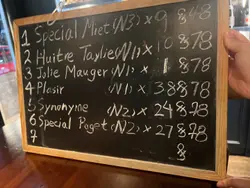 1 Special Miet (N3) x 9 848
2 Huitre Taylie (N1) x 10 878
3 Jolie Mauger (N1) x 1 878
4 Plasir (N1) x 38 878
5 Synonyme (N2) x 24 878
6 Special Paget (N2) x 27 878
7 8